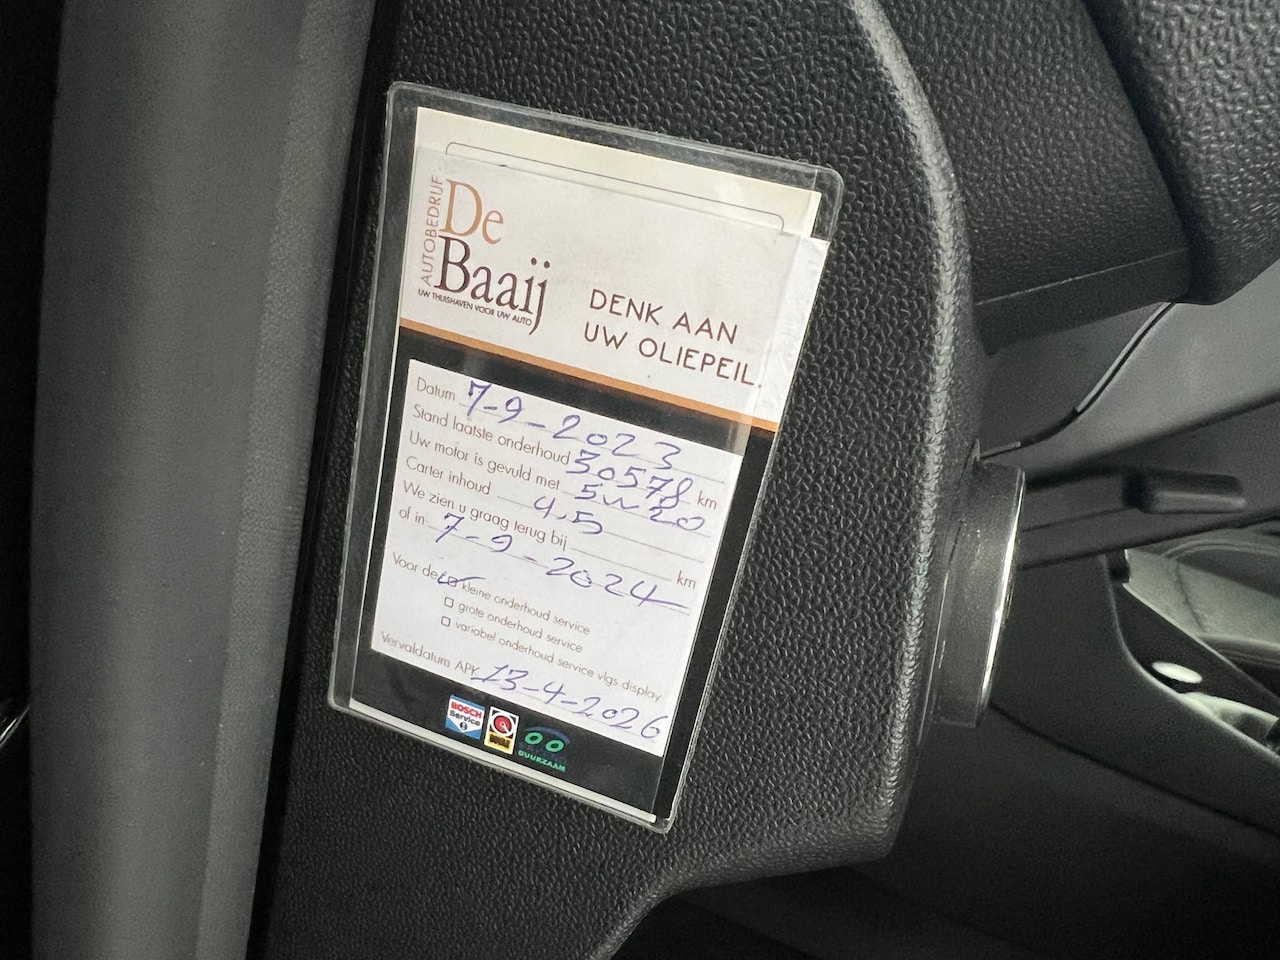 AUTOBEDRIJF
De
Baaij
UW THUISHAVEN VOOR UW AUTO
DENK AAN
UW OLIEPEIL.
Datum 7-9-2023
Stand laatste onderhoud 30578 km
Uw motor is gevuld met 5w20
Carter inhoud 4.5
We zien u graag terug bij km
of in 7-9-2024
Voor de kleine onderhoud service
grote onderhoud service
variabel onderhoud service vlgs display
Vervaldatum APK 13-4-2026
BOSCH
Service
BOVAG
DUURZAAM